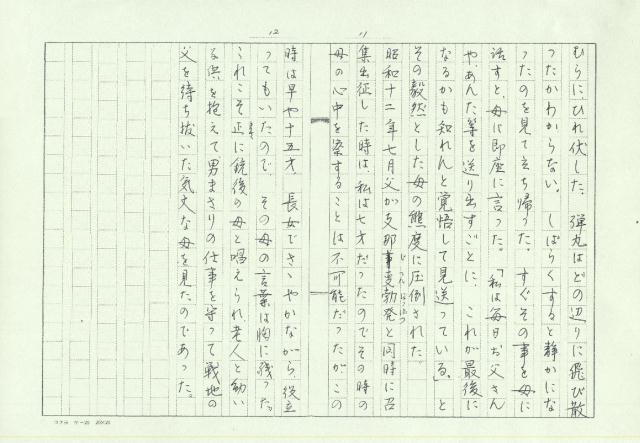 11
むらにひれ伏した。弾丸はどの辺りに飛び散
ったかわからない。しばらくすると静かにな
ったのを見て立ち帰った。すぐその事を母に
話すと、母は即座に言った。「私は毎日お父さん
や、あんた等を送り出すごとに、これが最後に
なるかも知れんと覚悟して見送っている」と
その毅然とした母の態度に圧倒された。
昭和十二年七月父が支那事変勃発と同時に召
集出征した時は、私は七才だったのでその時の
母の心中を察することは不可能だったがこの
12
時は早や十五才。長女でさゝやかながら役立
ってもいたので、その母の言葉は胸に残った。
これこそ正に銃後の母と唱えられ老人と幼い
子供を抱えて男まさりの仕事を守って戦地の
父を待ち抜いた気丈な母を見たのであった。
コクヨ ケー25 20×20